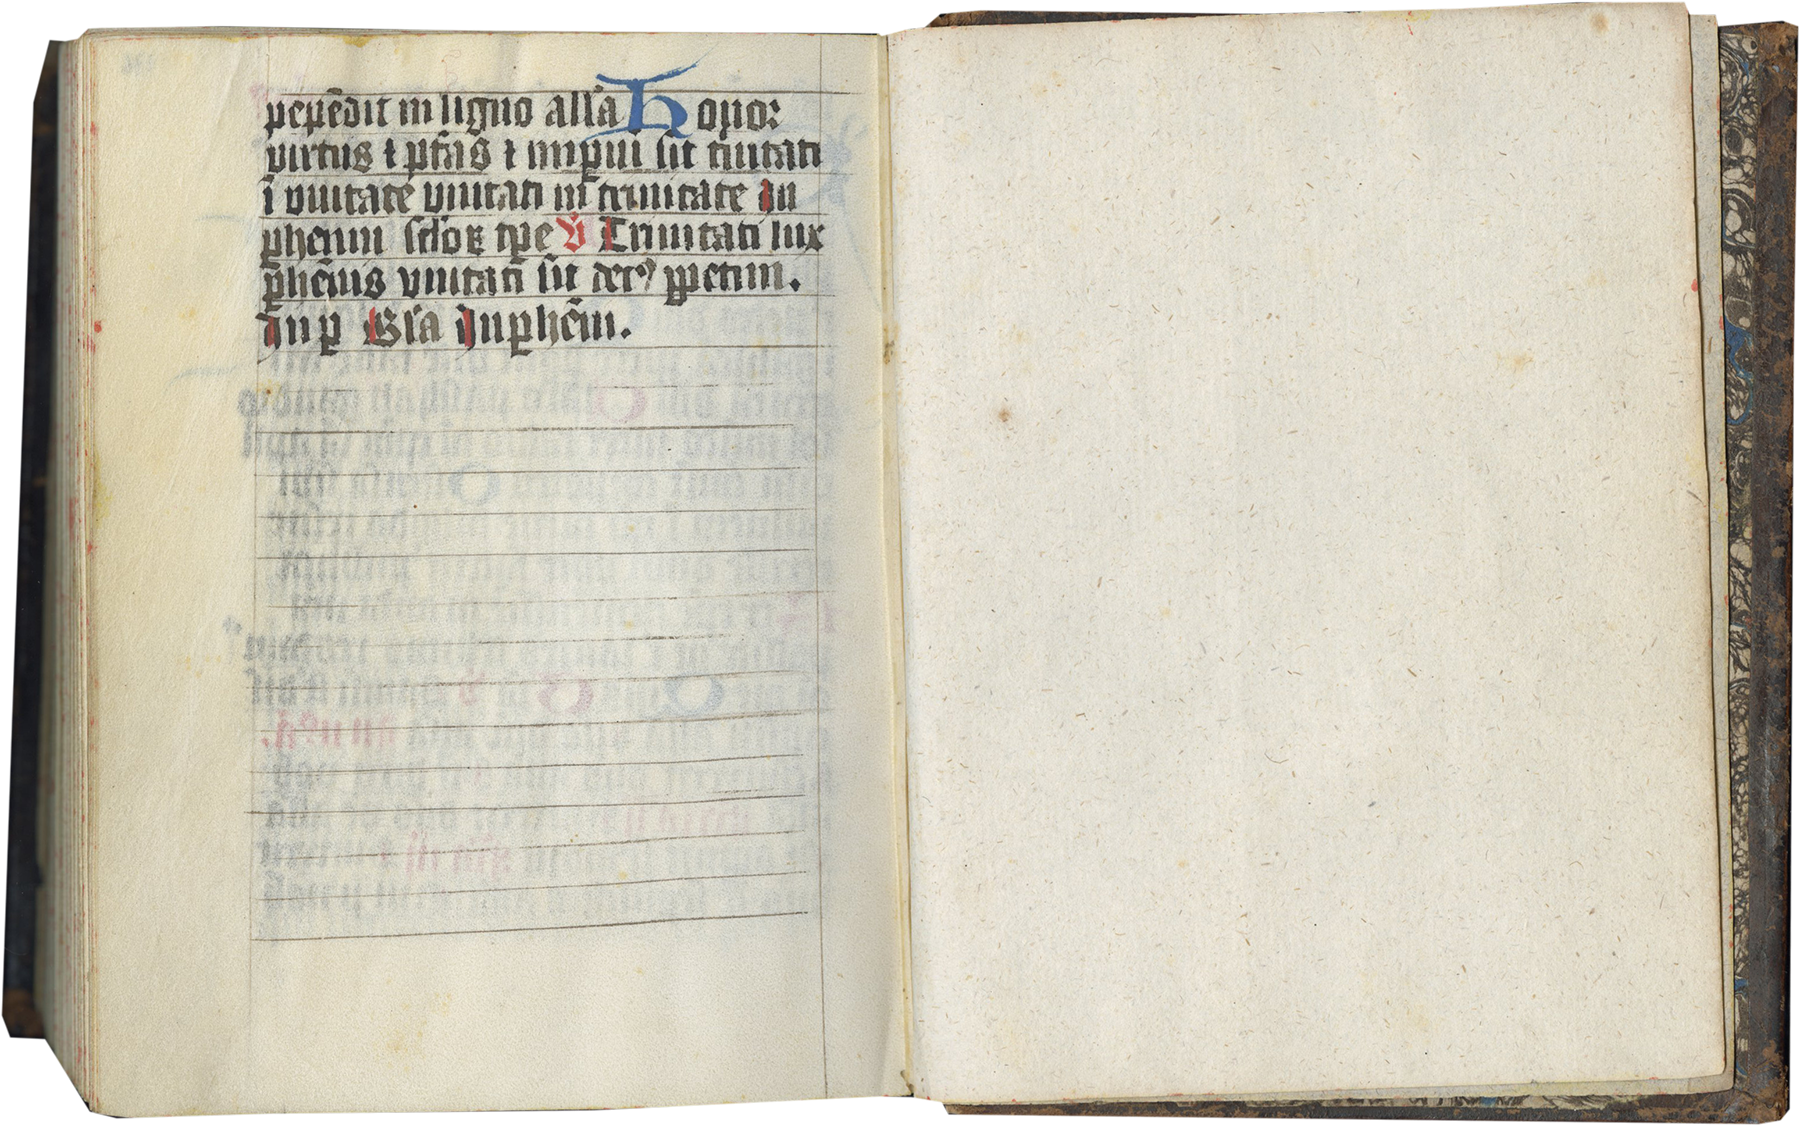 pepēdit in ligno all'a Honor
virtus ⁊ ptās ⁊ imperiū sit trinitati
ī unitate unitati in trinitate In
phenni sclōꝝ tpe V̄ Trinitati lux
phēnis unitati sit decꝰ ꝑpetim.
In p Gl'a In phēni.